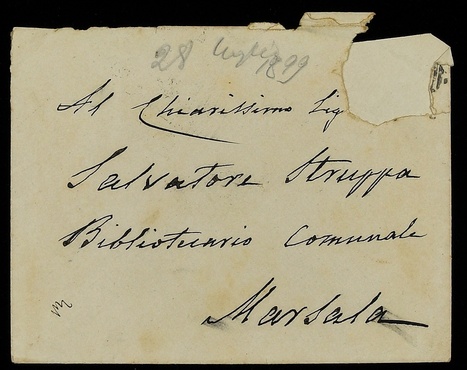 28 luglio 1899
Al Chiarissimo Sig
Salvatore Struppa
Bibliotecario Comunale
Marsala